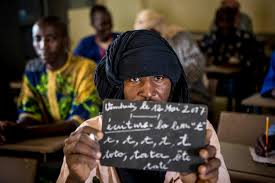 Vendredi, le 12 Mai 2017
écriture: la lettre "t"
t, t, t, t, t
toto, tata, été